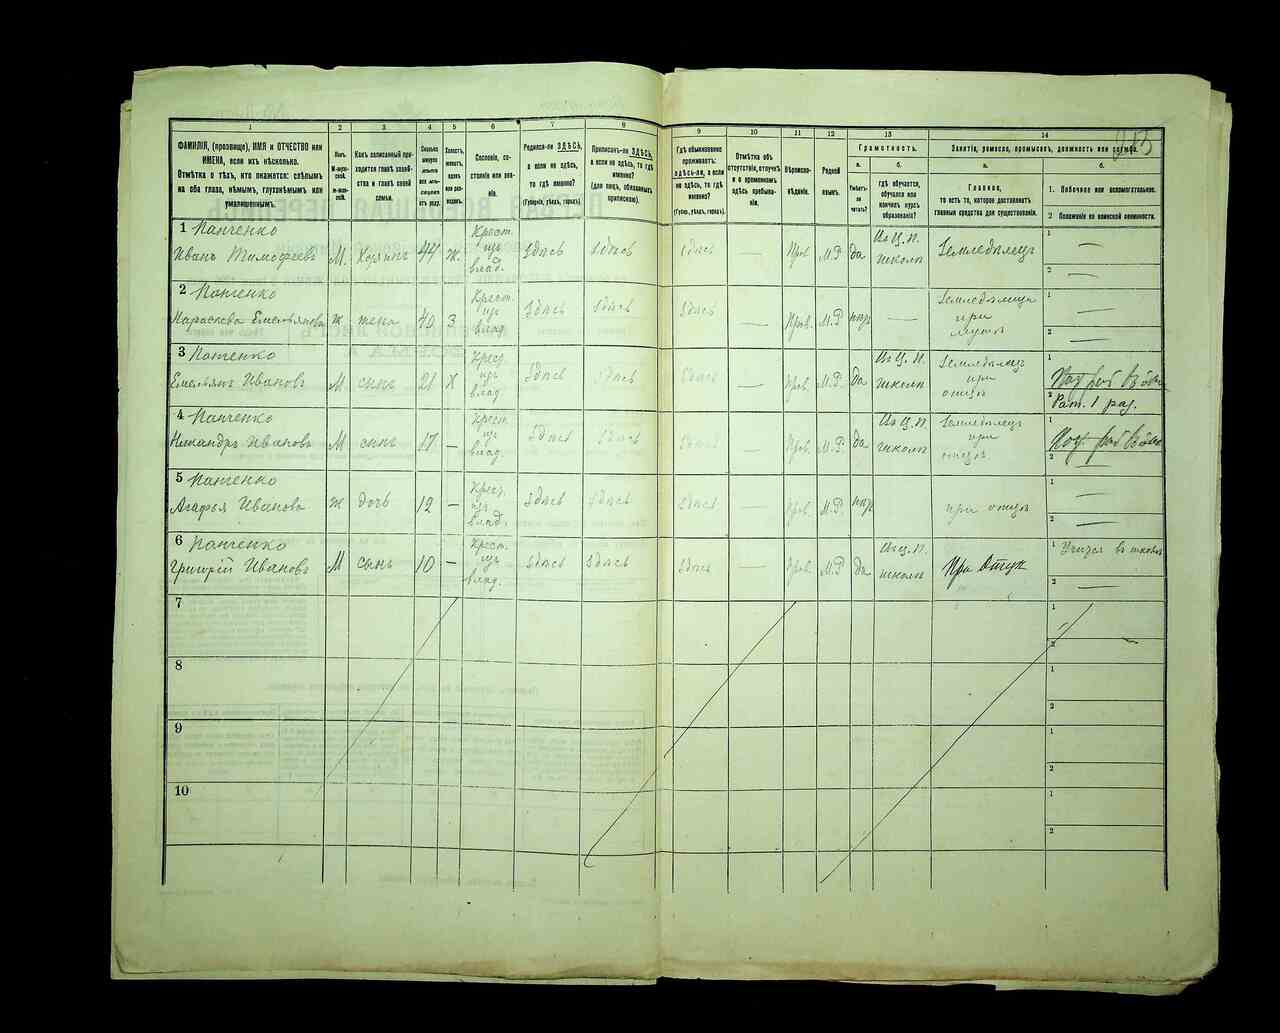 1
2
3
4
5
6
7
8
9
10
11
12
13
14
213
ФАМИЛІЯ, (прозвище), ИМЯ и ОТЧЕСТВО или
ИМЕНА, если ихъ нѣсколько.
Отмѣтка о тѣхъ, кто окажется: слѣпымъ
на оба глаза, нѣмымъ, глухонѣмымъ или
умалишеннымъ.
Какъ записанный при-
ходится главѣ хозяй-
ства и главѣ своей
семьи.
Сколько
минуло
лѣтъ
Холостъ,
женатъ,
вдовъ
или раз-
веденъ.
Сословіе, со-
стояніе или зва-
ніе.
Родился-ли ЗДѢСЬ,
а если не здѣсь,
то гдѣ именно?
(Губернія, уѣздъ, городъ).
Приписанъ-ли ЗДѢСЬ,
а если не здѣсь, то гдѣ
именно?
(для лицъ, обязанныхъ
припискою).
Гдѣ обыкновенно
проживаетъ:
здѣсь-ли, а если
не здѣсь, то гдѣ
именно?
(Губер., уѣздъ, городъ).
Отмѣтка объ
отсутствіи, отлучкѣ
и о временномъ
здѣсь пребыва-
ніи.
Вѣроиспо-
вѣданіе.
Родной
языкъ.
Грамотность.
а.
Умѣетъ-
ли
читать?
б.
гдѣ обучается,
обучался или
кончилъ курсъ
образованія?
Занятіе, ремесло, промыселъ, должность или служба.
а.
Главное,
то есть то, которое доставляетъ
главныя средства для существованія.
б.
1. Побочное или вспомогательное.
2 Положеніе по воинской повинности.
1 Панченко
Иванъ Тимофеевъ М. Хозяинъ 44 Ж. Крест. изъ влад. Здѣсь Здѣсь Здѣсь — Прав М.Р да Из Ц.П. школы Земледѣлецъ 1 — 2 —
2 Панченко
Параскева Емельянова Ж жена 40 З Крест. изъ влад Здѣсь Здѣсь Здѣсь — Прав. М.Р. — при мужѣ 1 — 2
3 Панченко
Емельянъ Ивановъ М сынъ 21 Х Крест. изъ влад Здѣсь Здѣсь Здѣсь — Прав. М.Р. да Из Ц.П. школы Земледѣлецъ при отцѣ 1
2 Рат. 1 раз.
4 Панченко
Никандръ Ивановъ М сынъ 17 — Крест из влад. Здѣсь Здѣсь Здѣсь — Прав. М.Р. да Из Ц.П. школы Земледѣлецъ при отцѣ 1
2 —
5 Панченко
Агафья Иванова Ж дочь 12 — Крест. из влад. Здѣсь Здѣсь Здѣсь — Прав. М.Р. при отцѣ 1 — 2 —
6 Панченко
Григорій Ивановъ М сынъ 10 — Крест. из влад. Здѣсь Здѣсь Здѣсь — Прав. М.Р да Из Ц.П. школы При Отцѣ 1 Учится в школѣ 2 —
7
1
2
8
1
2
9
1
2
10
1
2